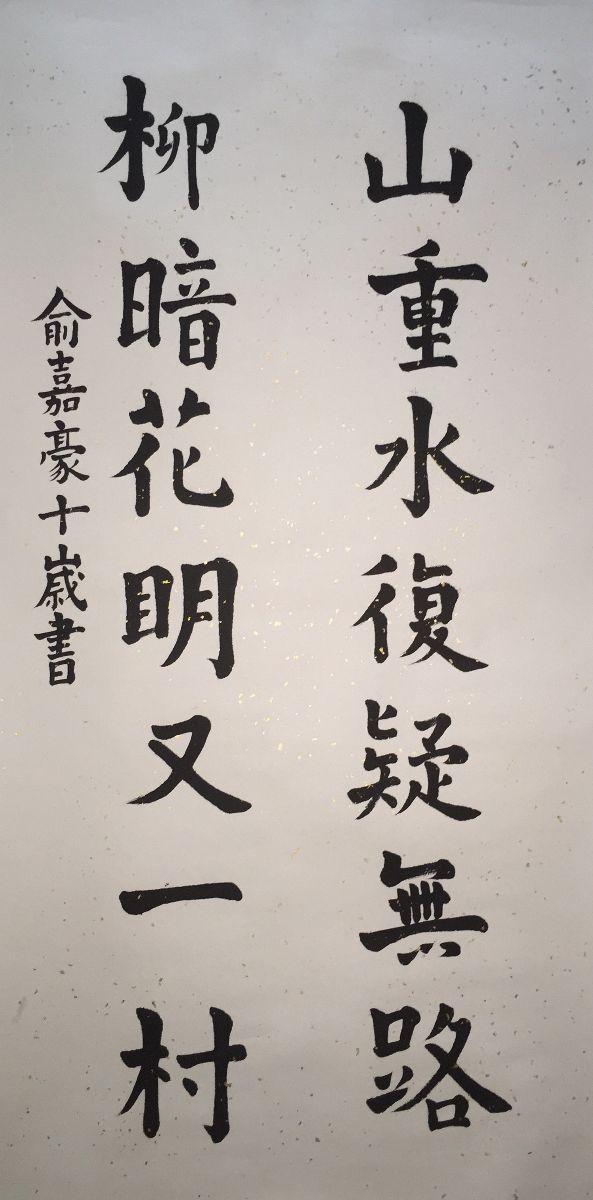 山重水復疑無路
柳暗花明又一村
俞嘉豪十歲書